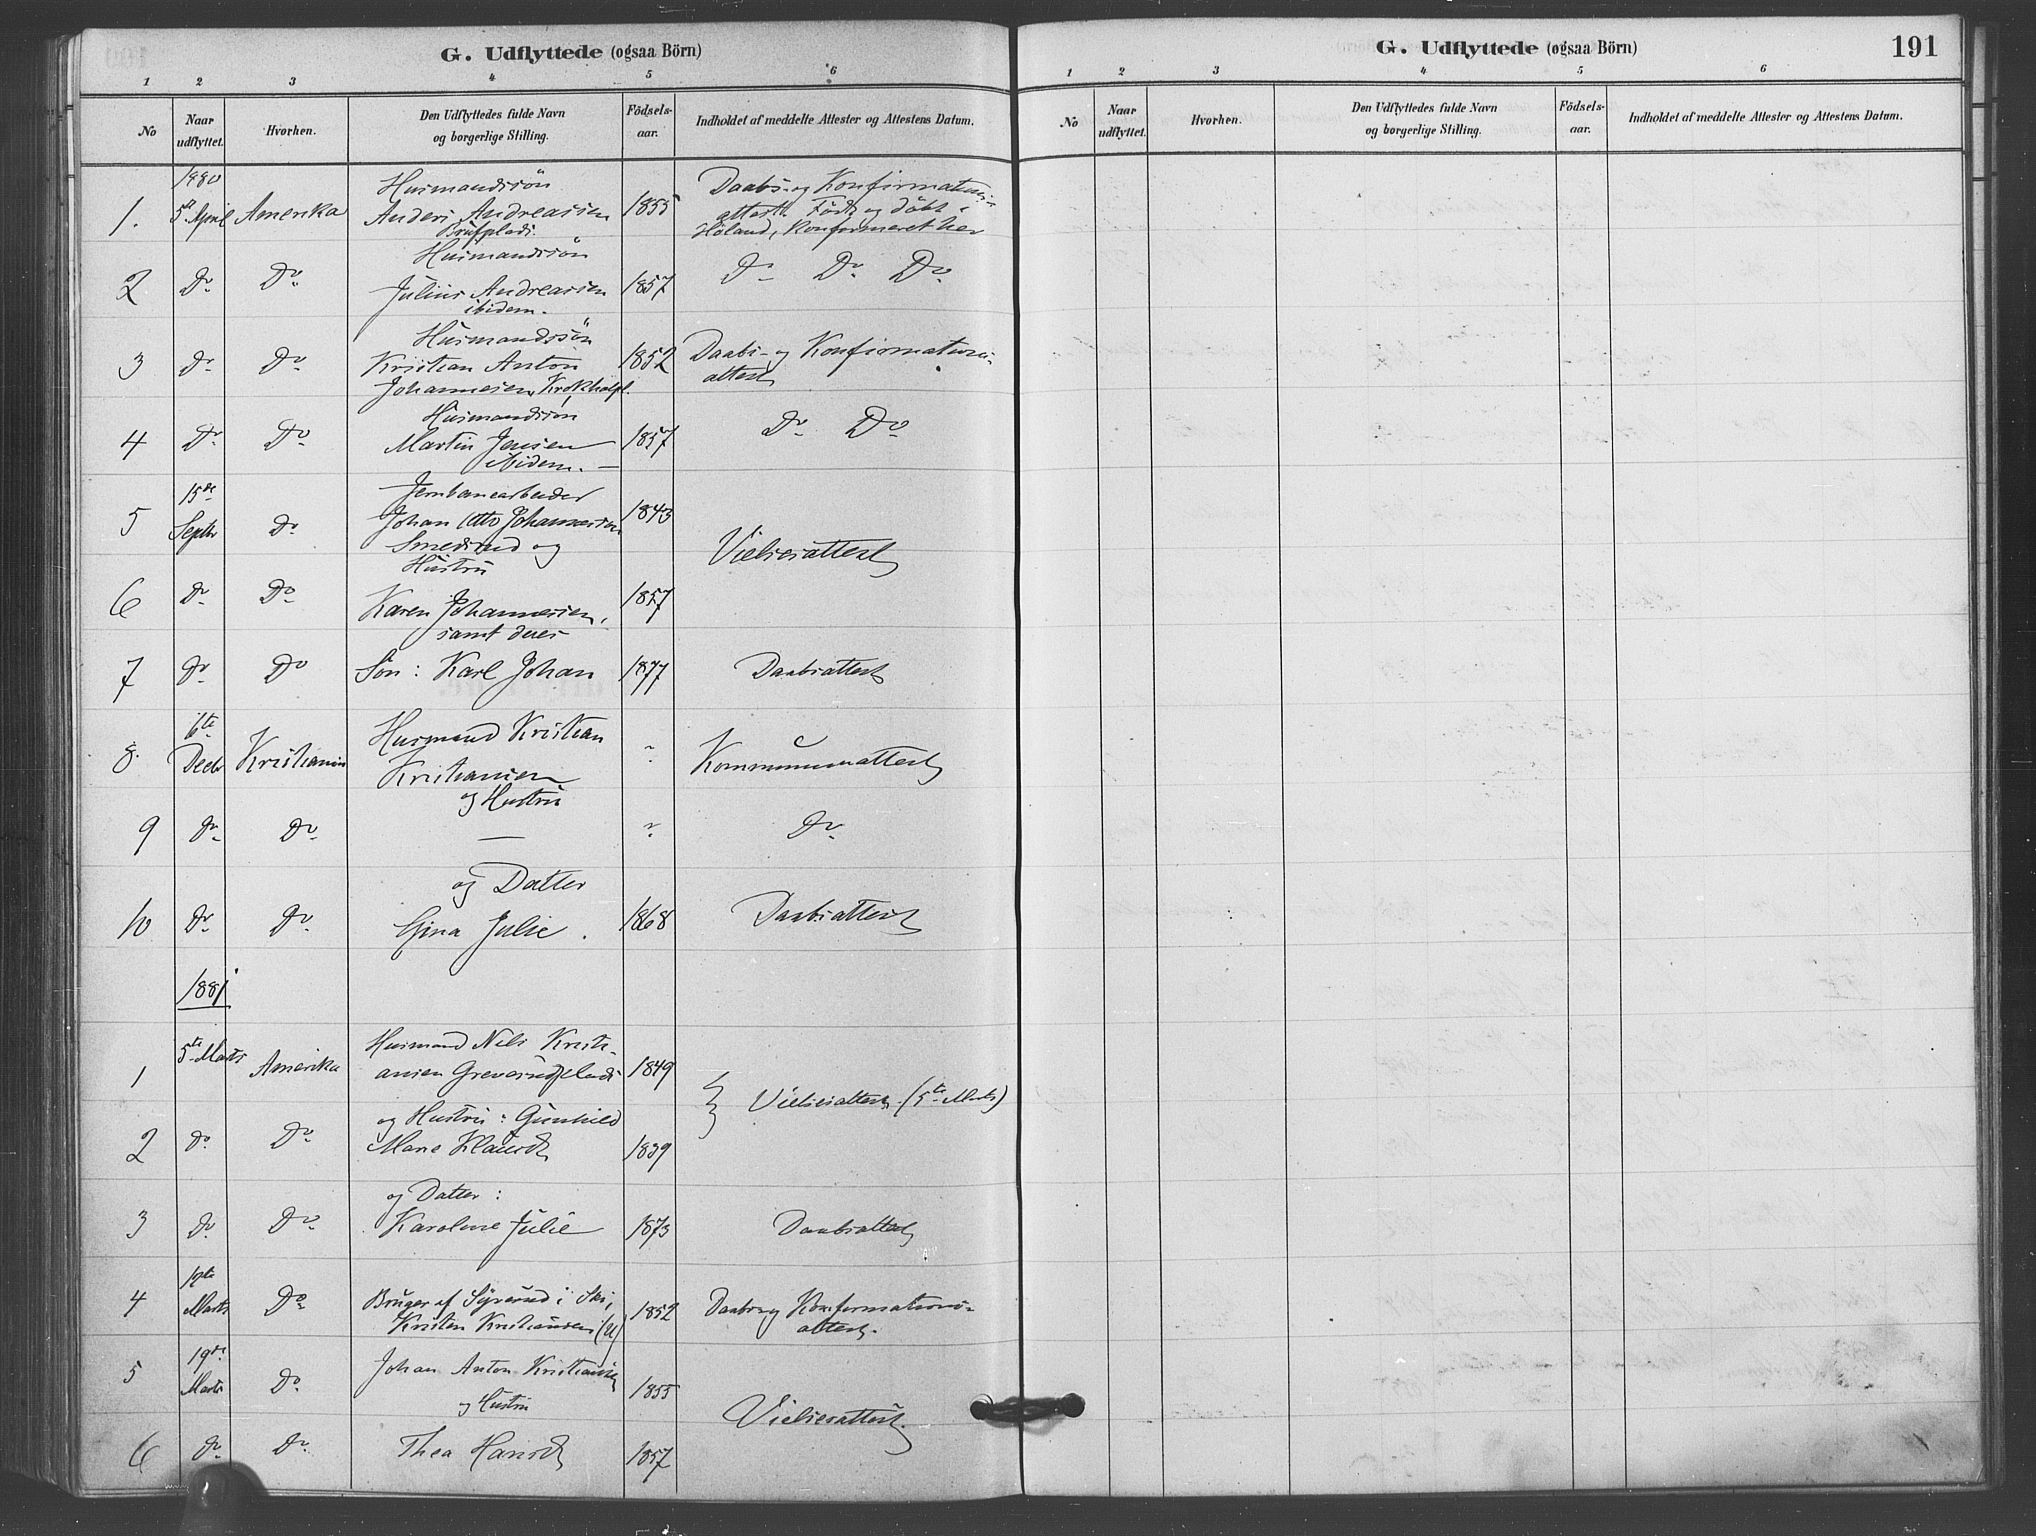 G. Udflyttede (ogsaa Börn)
1 2 3 4 5 6
No
Naar udflyttet.
Hvorhen.
Den Udflyttedes fulde Navn og borgerlige Stilling.
Födsels-aar.
Indholdet af meddelte Attester og Attestens Datum.
1880
Husmandssön
Daabs- og Konfirmations-
1. 5te April Amerika Anders Andreassen 1855 attest. Födt og döbt i
Höland, Konfirmeret her
Husmandssön
2 Do Do Julius Andreassen 1857 Do Do Do
ibidem.
Husmandssön
3 Do Do Kristian Anton 1852 Daabs- og Konfirmations-
Johannesen, Krokholpl. attest
Husmandssön
4 Do Do Martin Jensen 1857 Do Do
ibidem. —
15de Jernbanearbeider
5 Septbr Do Johan Otto Johannessen 1843
Smedsrud og
Vielsesattest
Hustru
6 Do Do Karen Johannessen, 1857
samt deres
7 Do Do Sön: Karl Johan 1877 Daabsattest
6te Husmand Kristian
8. Decbr Kristiania Kristiansen " Kommunionattest
og Hustru
9 Do Do — " Do
og Datter
10 Do Do Gina Julie. 1868 Daabsattest
1881
5te Marts Husmand Nils Kristi-
1 Amerika ansen Greverudplads 1849
Vielsesattest (5te Marts)
og Hustru: Gunhild
2 Do Do Marie Klausd 1839
og Datter:
3 Do Do Karoline Julie 1873 Daabsattest
4 Marts Do Bruger af Syverud i Ski, 1852 Daabs og Konfirmations-
Kristen Kristiansen (U) attest.
19de Johan Anton Kristiansen
5 Marts Do 1855
og Hustru
Vielsesattest.
6 Do Do Thea Hansd 1857
G. Udflyttede (ogsaa Börn)
191
1 2 3 4 5 6
No
Naar udflyttet.
Hvorhen.
Den Udflyttedes fulde Navn og borgerlige Stilling.
Födsels-aar.
Indholdet af meddelte Attester og Attestens Datum.